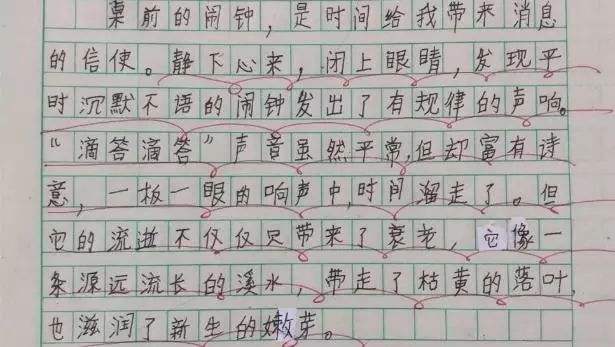 桌前的闹钟，是时间给我带来消息
的信使。静下心来，闭上眼睛，发现平
时沉默不语的闹钟发出了有规律的声响。
“滴答滴答”声音虽然平常，但却富有诗
意，一板一眼的响声中，时间溜走了。但
它的流逝不仅仅只带来了衰老，它像一
条源远流长的溪水，带走了枯黄的落叶，
也滋润了新生的嫩芽。